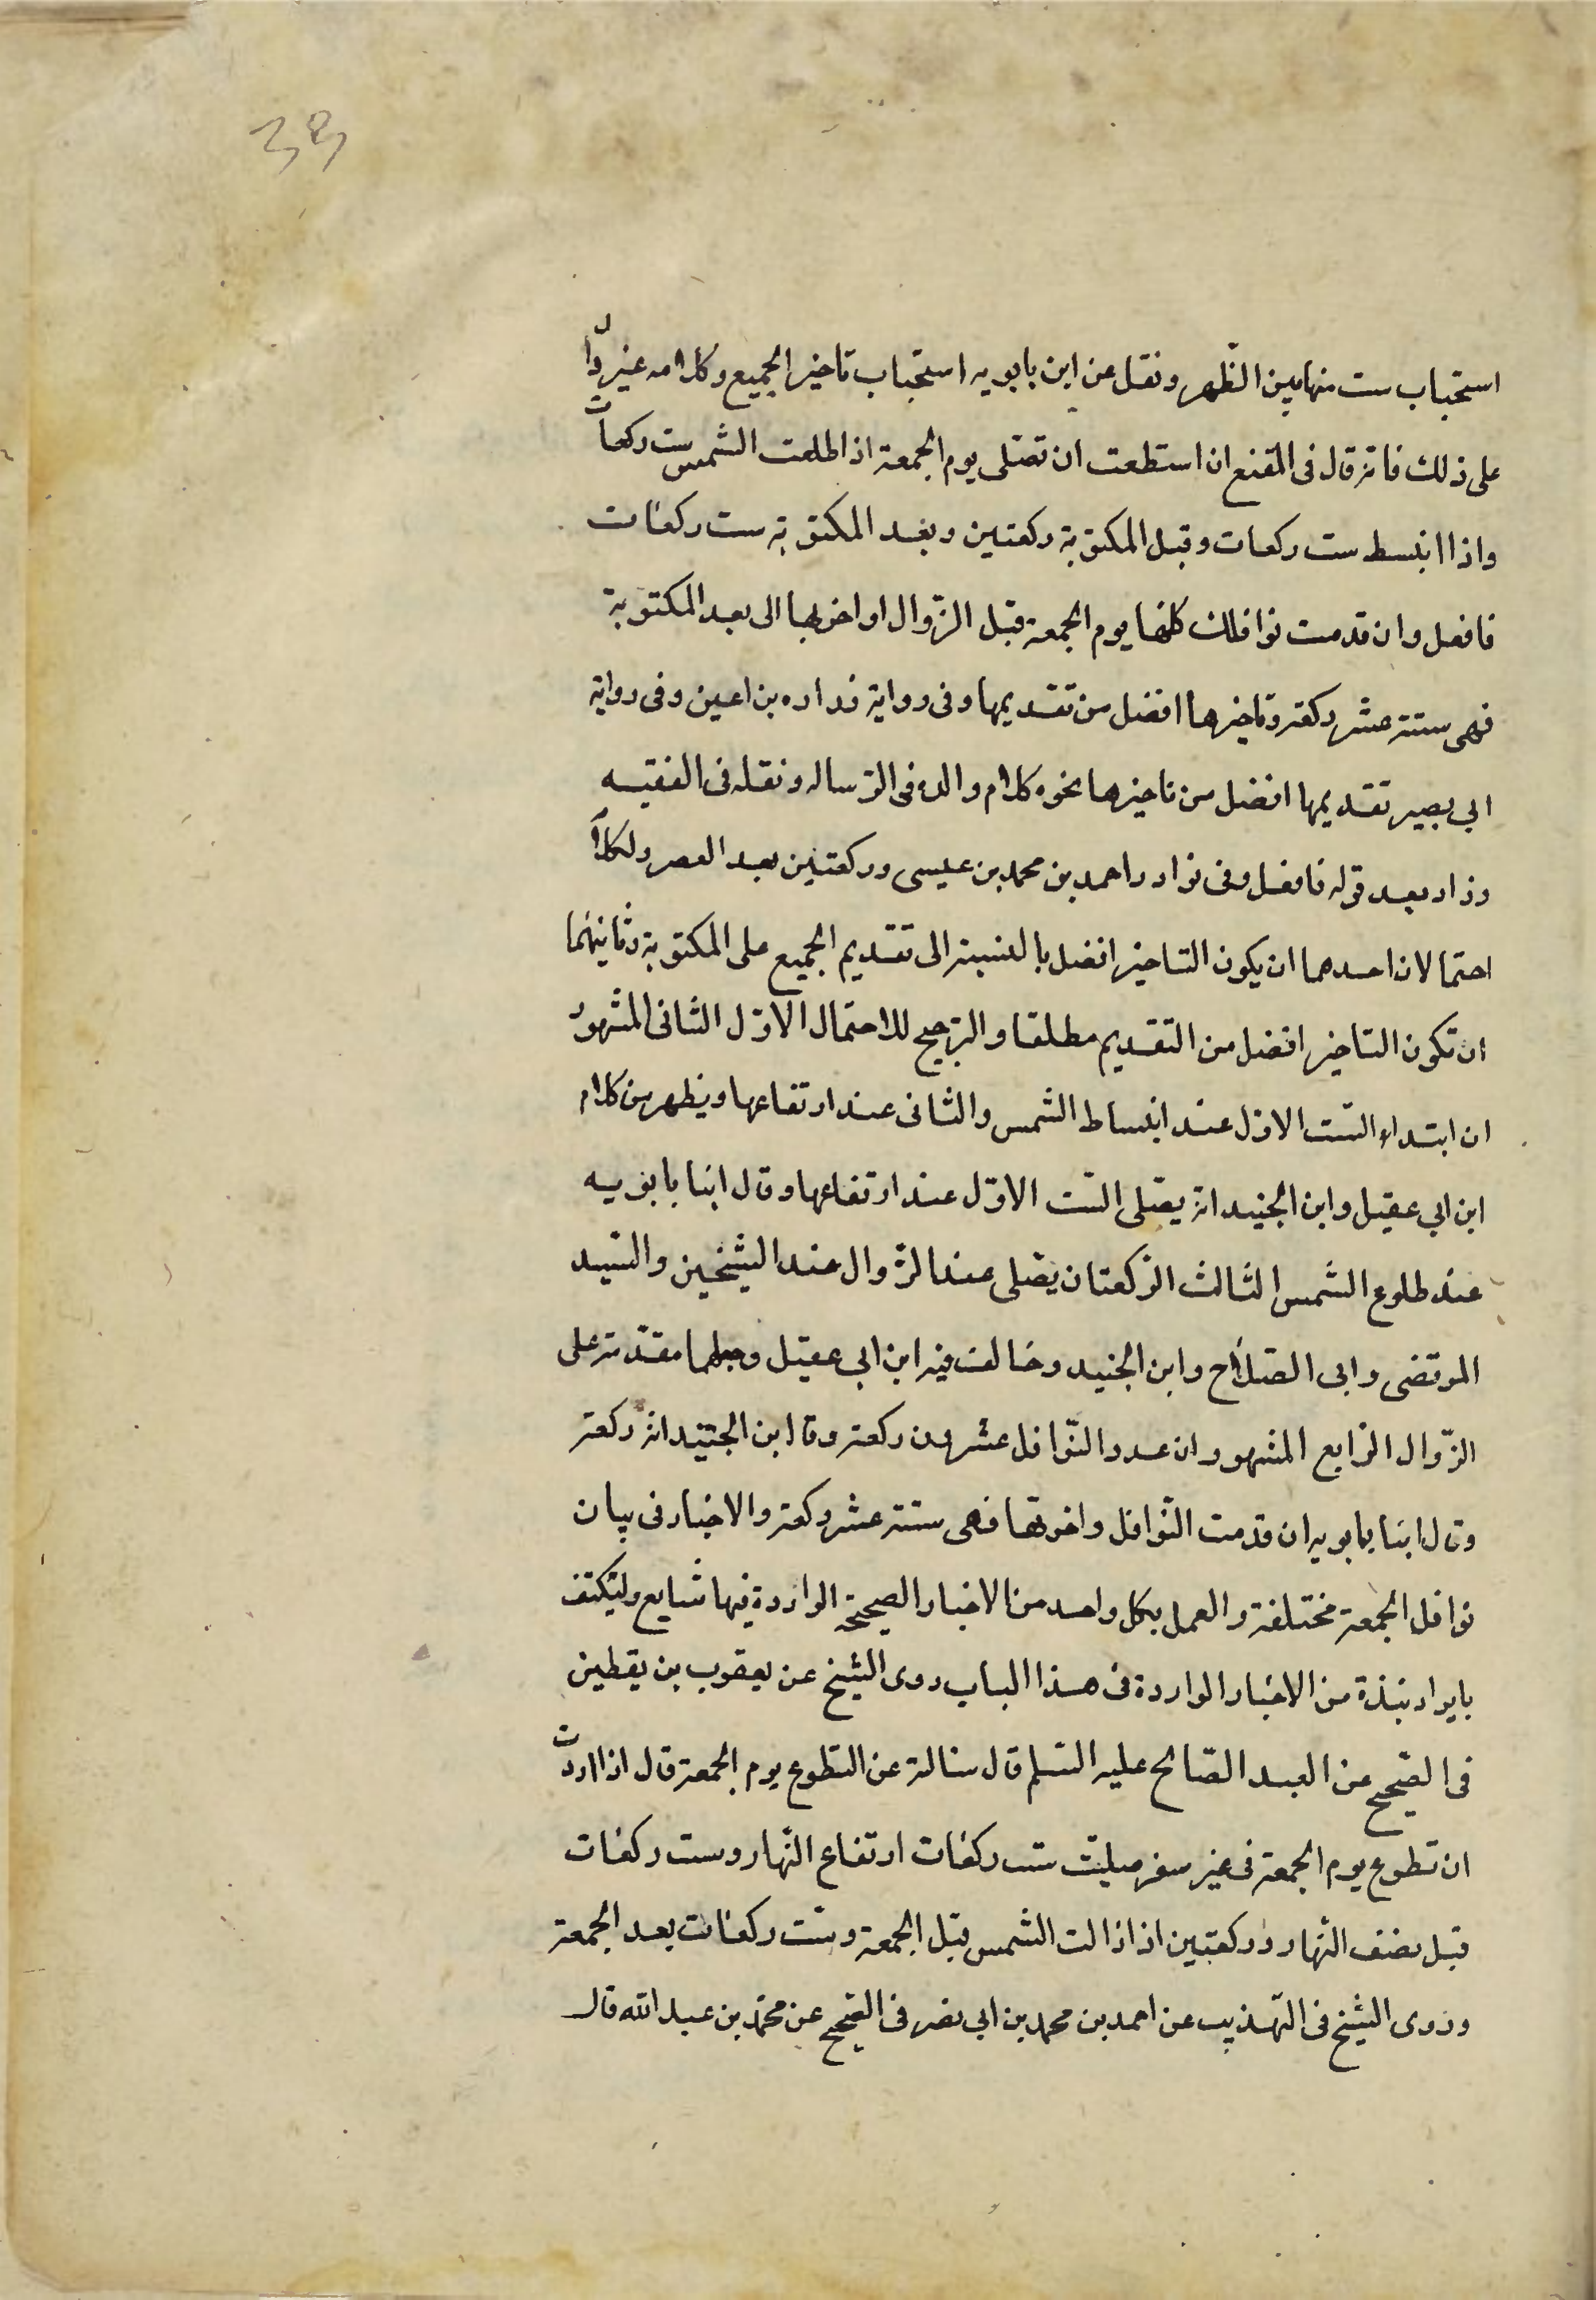 39
استحباب ست منها بين الظهر ونقل عن ابن بابويه استحباب تاخير الجميع وكلامه غير دال
على ذلك فانه قال فى المقنع ان استطعت ان تصلى يوم الجمعة اذا طلعت الشمس ست ركعات
واذا انبسط ست ركعات وقبل المكتوبة ركعتين وبعد المكتوبة ست ركعات
فافعل وان قدمت نوافلك كلها يوم الجمعة قبل الزوال او اخرتها الى بعد المكتوبة
فهى ستة عشر ركعة وتاخيرها افضل من تقديمها وفى رواية زراره بن اعين وفى رواية
ابي بصير تقديمها افضل من تاخيرها نحوه كلام والده فى الرساله ونقله فى الفقيه
وزاد بعد قوله فافعل وفى نوادر احمد بن محمد بن عيسى وركعتين بعد العصر ولكلامه
احتمالان احدهما ان يكون التاخير افضل بالنسبة الى تقديم الجميع على المكتوبة وثانيهما
ان تكون التاخير افضل من التقديم مطلقا والترجيح للاحتمال الاول الثانى المشهور
ان ابتداء الست الاول عند انبساط الشمس والثانى عند ارتفاعها ويظهر من كلام
ابن ابي عقيل وابن الجنيد انه يصلى الست الاول عند ارتفاعها وقال ابنا بابويه
عند طلوع الشمس الثالث الركعتان يصلى عند الزوال عند الشيخين والسيد
المرتضى وابى الصلاح وابن الجنيد وخالف فيه ابن ابي عقيل وجعلها مقدمة على
الزوال الرابع المشهور ان عدد النوافل عشرون ركعة وقال ابن الجنيد انه ركعة
وقال ابنا بابويه ان قدمت النوافل واخرتها فهى ستة عشر ركعة والاخبار فى بيان
نوافل الجمعة مختلفة والعمل بكل واحد من الاخبار الصحيحة الواردة فيها شايع وليكتف
بايراد نبذة من الاخبار الواردة فى هذا الباب روى الشيخ عن يعقوب بن يقطين
فى الصحيح عن العبد الصالح عليه السلم قال سالته عن التطوع يوم الجمعة قال اذا اردت
ان تطوع يوم الجمعة فى غير سفر صليت ست ركعات ارتفاع النهار وست ركعات
قبل نصف النهار وركعتين اذا زالت الشمس قبل الجمعة وست ركعات بعد الجمعة
وروى الشيخ فى التهذيب عن احمد بن محمد بن ابي نصر فى الصحيح عن محمد بن عبد الله قال